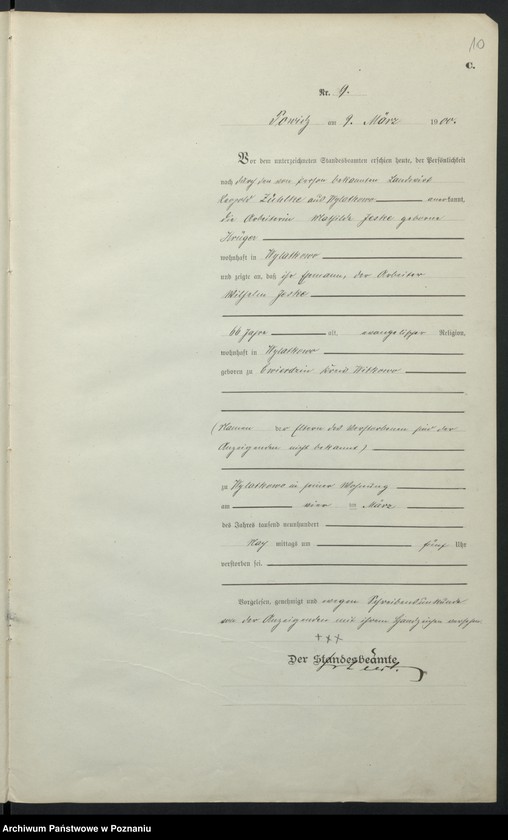 10
C.
Nr. 9.
Powidz am 9. März 1900.
Vor dem unterzeichneten Standesbeamten erschien heute, der Persönlichkeit
nach durch den von Person bekannten Landwirt
Leopold aus Wylatkowo anerkannt,
die Arbeiterin Mathilde Jeske geborene
Krüger
wohnhaft in Wylatkowo
und zeigte an, daß ihr Ehemann, der Arbeiter
Wilhelm Jeske
66 Jahre alt, evangelischer Religion,
wohnhaft in Wylatkowo
geboren zu Kreis Witkowo
(Namen der Eltern des Verstorbenen sind der
Anzeigenden nicht bekannt)
zu Wylatkowo in seiner Wohnung
am vier ten März
des Jahres tausend neunhundert
Nach mittags um fünf Uhr
verstorben sei.
Vorgelesen, genehmigt und wegen Schreibensunkunde
von der Anzeigenden mit ihrem Handzeichen versehen
+++
Der Standesbeamte.
Archiwum Państwowe w Poznaniu